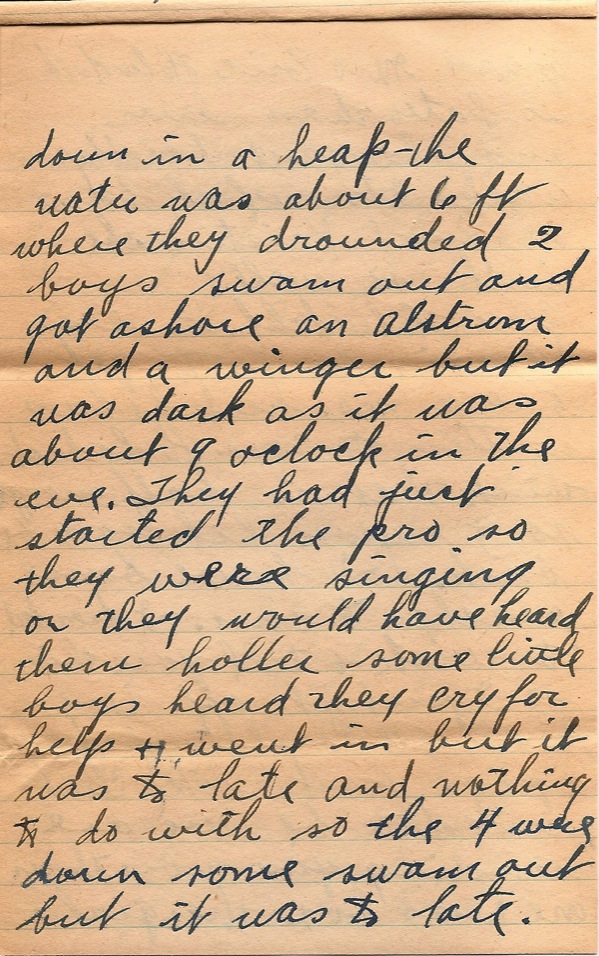 down in a heap - the
water was about 6 ft
where they drounded 2
boys swam out and
got ashore an Alstrom
and a winger but it
was dark as it was
about 9 oclock in the
eve. They had just
started the pro so
they were singing
or they would have heard
them holler some little
boys heard they cry for
help & went in but it
was to late and nothing
to do with so the 4 were
down some swam out
but it was to late.